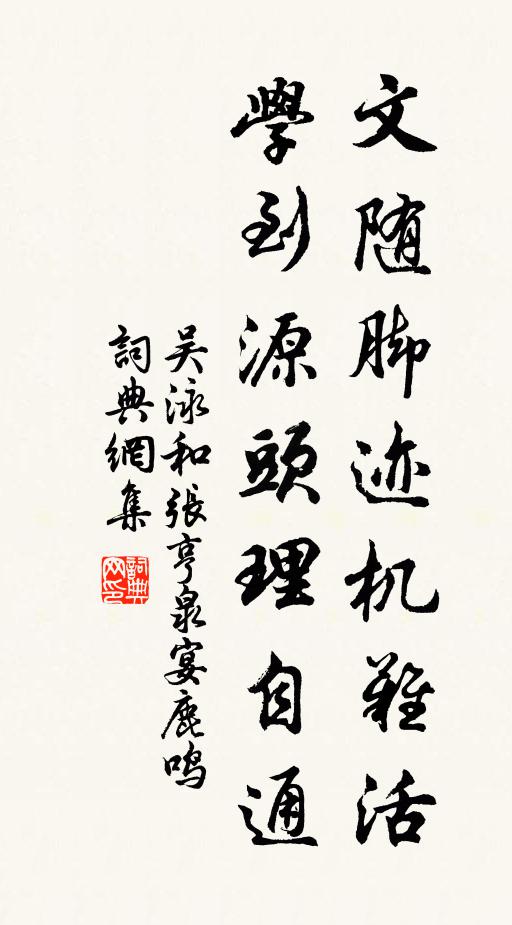 文随脚迹机难活
學到源頭理自通
吴泳和張亨泉宴鹿鸣
詞典網集
詞典网印